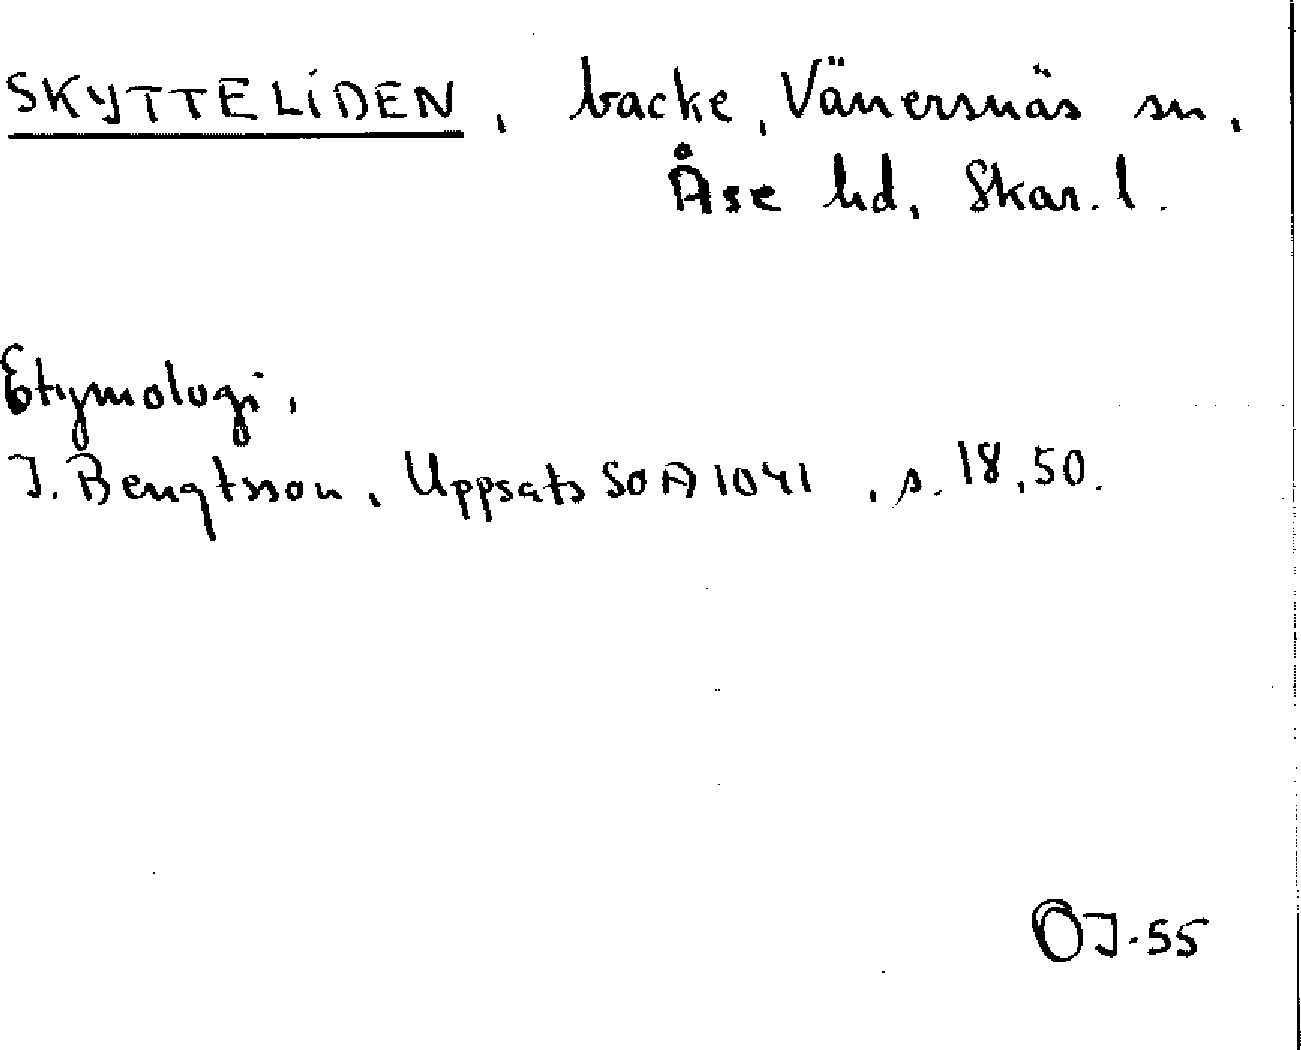 SKYTTELIDEN, backe, Vänersnäs sn,
Åse hd, Skar. l.
Etymologi,
J. Bengtsson, Uppsats SOA 1041, s. 18, 50.
OJ-55